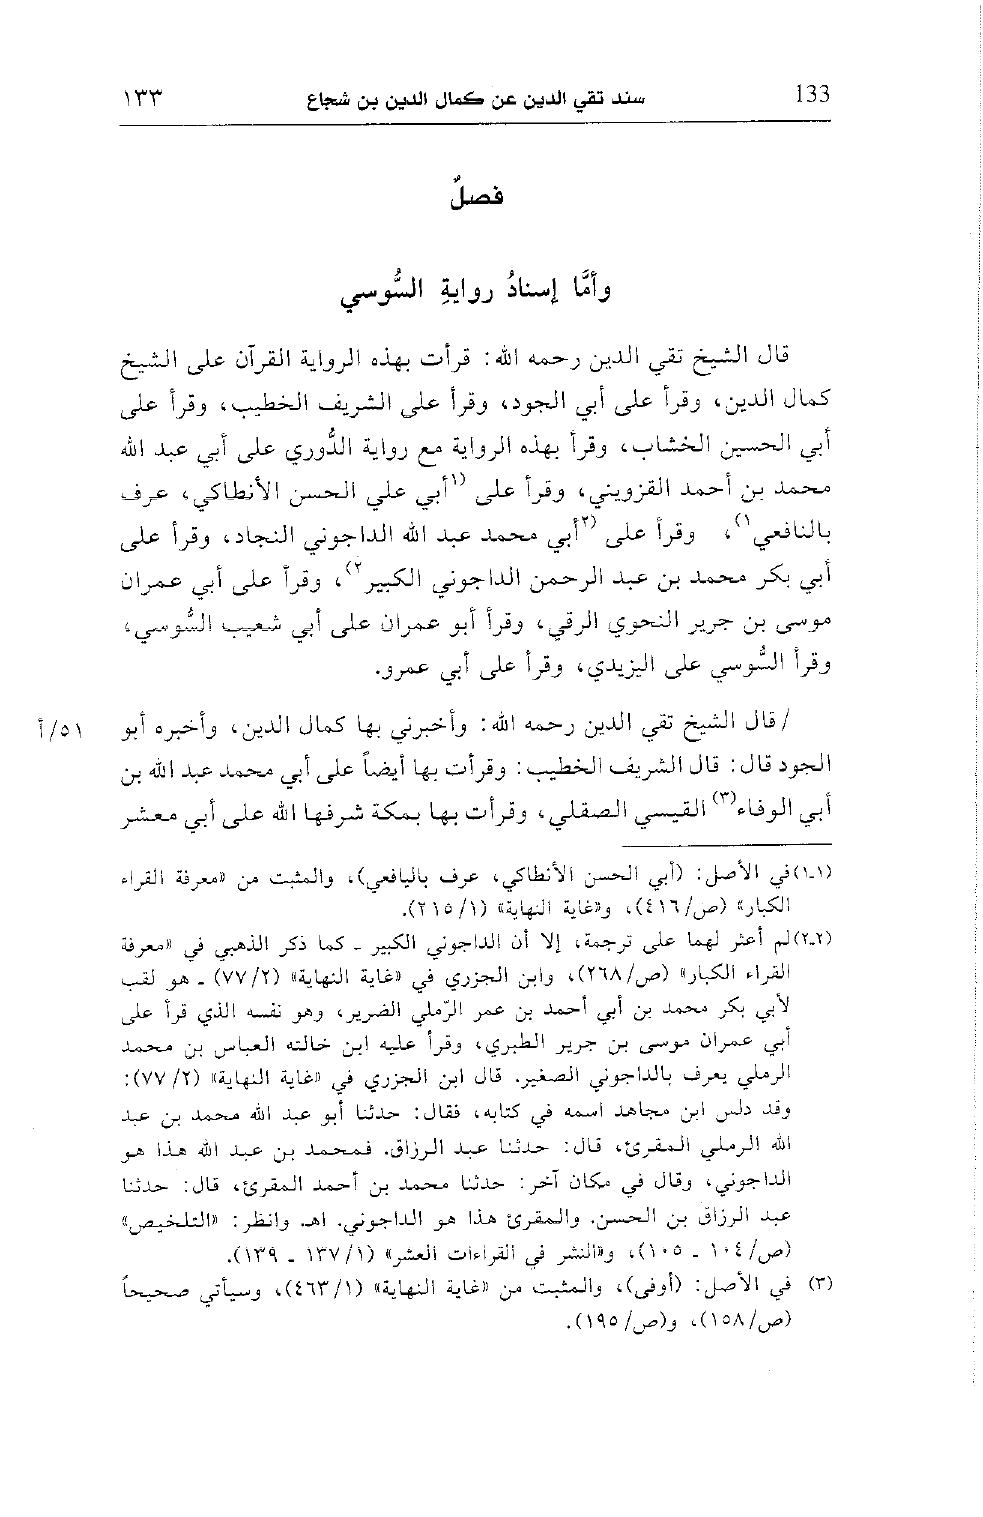 133 سند تقي الدين عن كمال الدين بن شجاع ١٣٣
فصلٌ
وأمَّا إسنادُ روايةِ السُّوسي
قال الشيخ تقي الدين رحمه الله: قرأت بهذه الرواية القرآن على الشيخ
كمال الدين، وقرأ على أبي الجود، وقرأ على الشريف الخطيب، وقرأ على
أبي الحسين الخشاب، وقرأ بهذه الرواية مع رواية الدُّوري على أبي عبد الله
محمد بن أحمد القزويني، وقرأ على (١أبي علي الحسن الأنطاكي، عرف
بالنافعي١)، وقرأ على (٢أبي محمد عبد الله الداجوني النجاد، وقرأ على
أبي بكر محمد بن عبد الرحمن الداجوني الكبير٢)، وقرأ على أبي عمران
موسى بن جرير النحوي الرقي، وقرأ أبو عمران على أبي شعيب السُّوسي،
وقرأ السُّوسي على اليزيدي، وقرأ على أبي عمرو.
/ قال الشيخ تقي الدين رحمه الله: وأخبرني بها كمال الدين، وأخبره أبو ٥١/أ
الجود قال: قال الشريف الخطيب: وقرأت بها أيضاً على أبي محمد عبد الله بن
أبي الوفاء(٣) القيسي الصقلي، وقرأت بها بمكة شرفها الله على أبي معشر
(١-١) في الأصل: (أبي الحسن الأنطاكي، عرف باليافعي)، والمثبت من «معرفة القراء
الكبار» (ص/٤١٦)، و«غاية النهاية» (٢١٥/١).
(٢-٢) لم أعثر لهما على ترجمة، إلا أن الداجوني الكبير ـ كما ذكر الذهبي في «معرفة
القراء الكبار» (ص/٢٦٨)، وابن الجزري في «غاية النهاية» (٧٧/٢) ـ هو لقب
لأبي بكر محمد بن أبي أحمد بن عمر الرّملي الضرير، وهو نفسه الذي قرأ على
أبي عمران موسى بن جرير الطبري، وقرأ عليه ابن خالته العباس بن محمد
الرملي يعرف بالداجوني الصغير. قال ابن الجزري في «غاية النهاية» (٧٧/٢):
وقد دلس ابن مجاهد اسمه في كتابه، فقال: حدثنا أبو عبد الله محمد بن عبد
الله الرملي المقرئ، قال: حدثنا عبد الرزاق. فمحمد بن عبد الله هذا هو
الداجوني، وقال في مكان آخر: حدثنا محمد بن أحمد المقرئ، قال: حدثنا
عبد الرزاق بن الحسن. والمقرئ هذا هو الداجوني. اهـ. وانظر: «التلخيص»
(ص/١٠٤ ـ ١٠٥)، و«النشر في القراءات العشر» (١٣٧/١ ـ ١٣٩).
(٣) في الأصل: (أوفى)، والمثبت من «غاية النهاية» (٤٦٣/١)، وسيأتي صحيحاً
(ص/١٥٨)، و(ص/١٩٥).